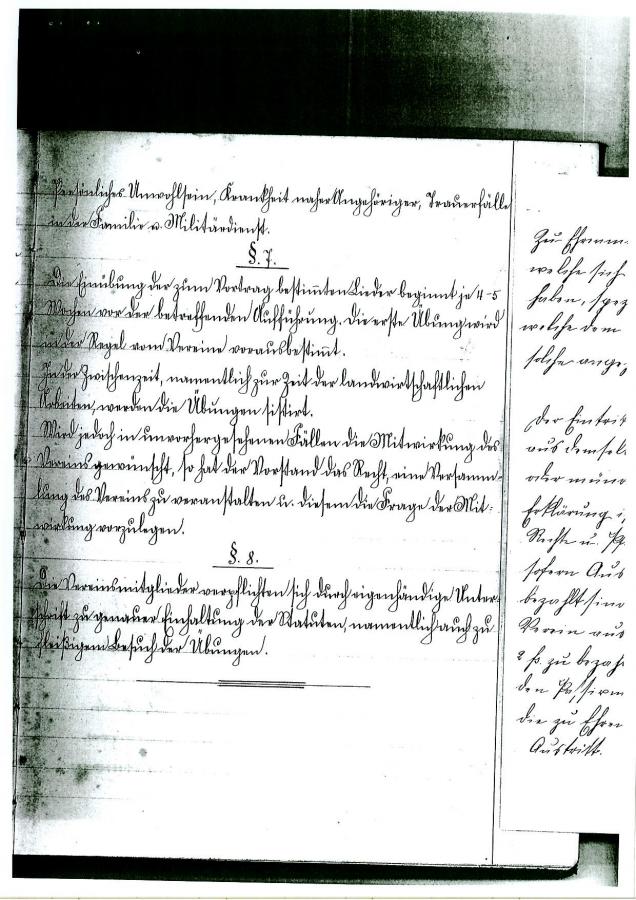 Persönliches Unwohlsein, Krankheit naher Angehöriger, Trauerfälle
in der Familie u. Militärdienst.
§. 7.
Die Einübung der zum Vortrag bestimmten Lieder beginnt je 4-5
Wochen vor der betreffenden Aufführung. Die erste Übung wird
in der Regel vom Vereine vorausbestimmt.
In der Zwischenzeit, namentlich zur Zeit der landwirtschaftlichen
Arbeiten, werden die Übungen sistirt.
Wird jedoch in unvorhergesehenen Fällen die Mitwirkung des
Vereins gewünscht, so hat der Vorstand das Recht, eine Versamm-
lung des Vereins zu veranstalten u. diesem die Frage der Mit-
wirkung vorzulegen.
§. 8.
Die Vereinsmitglieder verpflichten sich durch eigenhändige Unter-
schrift zu genauer Einhaltung der Statuten, namentlich auch zu
fleißigem Besuch der Übungen.
Zu Ehrenm-
welche sich
haben, spez
welche dem
solche ange
Der Eintrit
aus demsel
oder münd
Erklärung
Rechte u. Pf
sofern Aus
bezahlt sind
Verein aus
2 fr. zu bezah
den Passivm
die zu Ehren
Austritt.